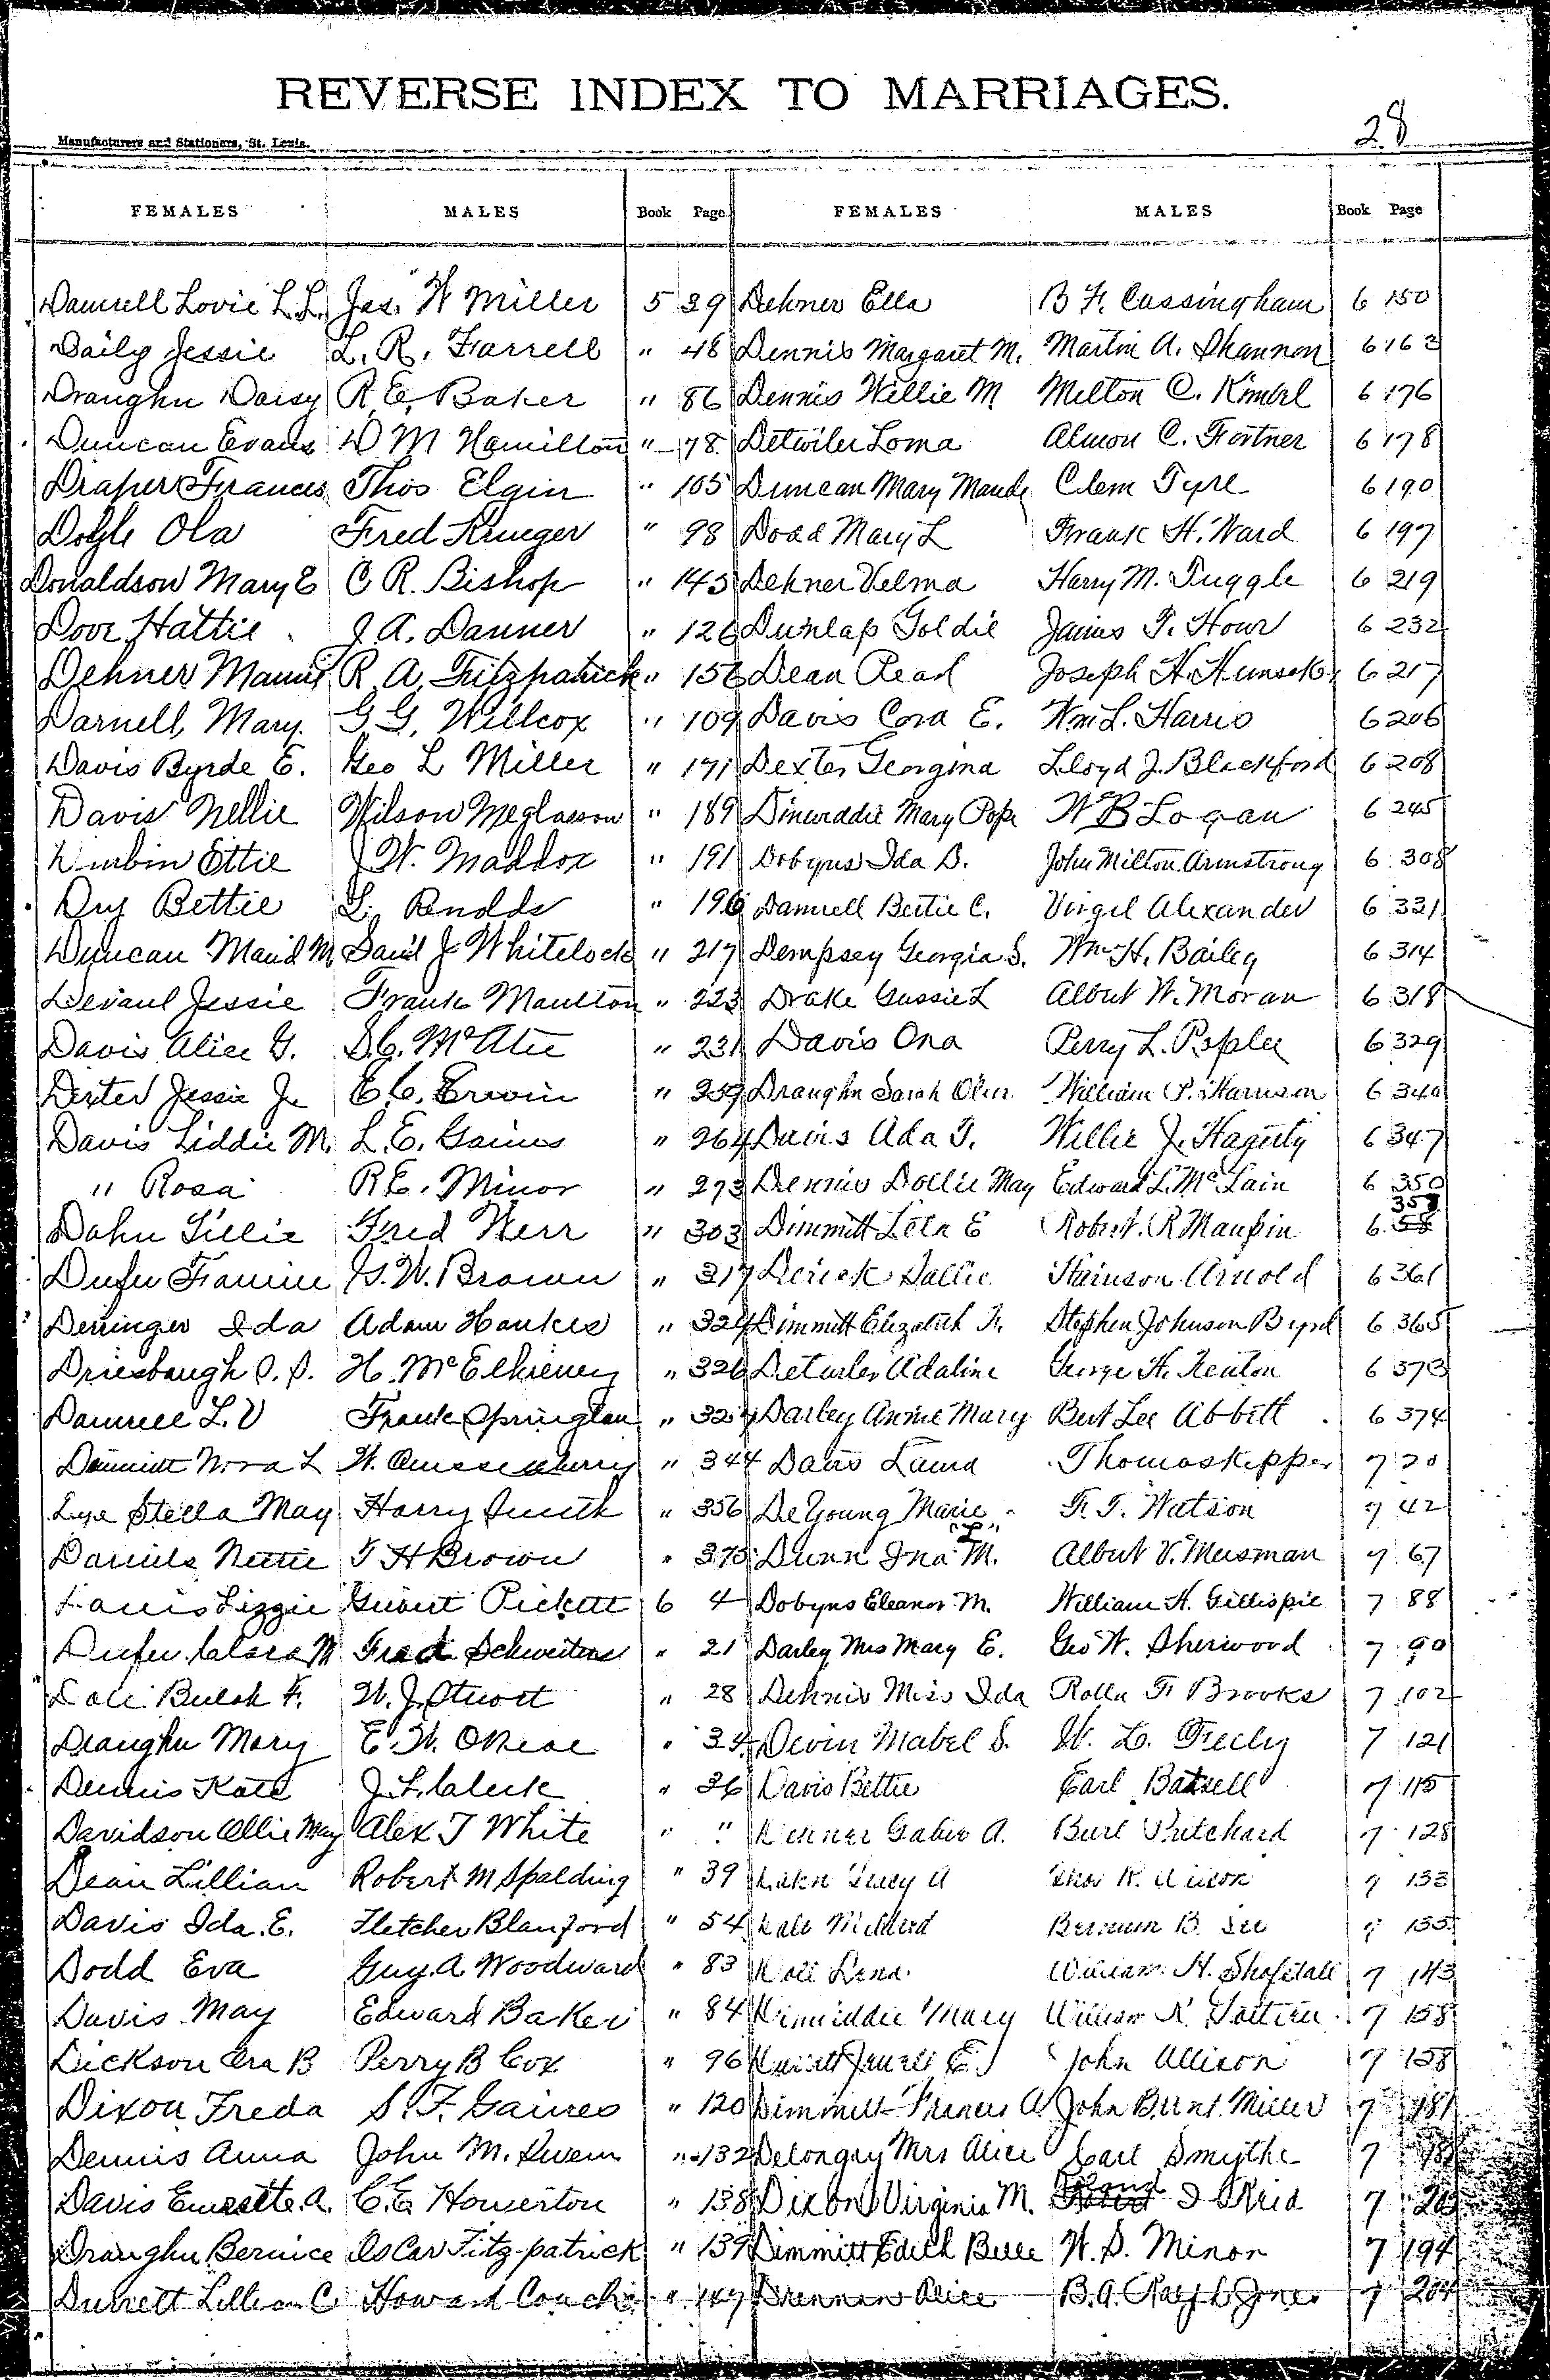 REVERSE INDEX TO MARRIAGES.
28
Manufacturers and Stationers, St. Louis.
FEMALES MALES Book Page FEMALES MALES Book Page
Damrell Lovie L.L. Jas. W Miller 5 39 Dehner Ella B F. Cassingham 6 150
Daily Jessie L. R. Farrell " 48 Dennis Margaret M. Martin A. Shannon 6 162
Draughn Daisy R. E. Baker " 86 Dennis Willie M. Melton C. Kimbrl 6 176
Duncan Evans D M Hamilton " 78 Detwiler Loma Almon C. Fortner 6 178
Draper Frances Thos Elgin " 105 Duncan Mary Maude Clem Tyre 6 190
Doyle Ola Fred Krueger " 98 Dodd Mary L Frank H. Ward 6 197
Donaldson Mary E C R. Bishop " 145 Dehner Velma Harry M. Tuggle 6 219
Dove Hattie J. A. Danner " 126 Dunlap Goldie James T. Hour 6 232
Dehner Mamie R A. Fitzpatrick " 156 Dean Pearl Joseph H. Hunsaker 6 217
Darnell, Mary. G. G. Willcox " 109 Davis Cora E. Wm L. Harris 6 206
Davis Byrde E. Geo L Miller " 171 Dexter Georgina Lloyd J. Blackford 6 208
Davis Nellie Wilson Meglasson " 189 Dinwiddie Mary Pope W B Logan 6 245
Durbin Ettie J W. Maddox " 191 Dobyns Ida D. John Milton Armstrong 6 308
Dry Bettie L. " 196 Damrell Bertie C. Virgil Alexander 6 331
Duncan Maud M Saml J. Whitelock " 217 Dempsey Georgia S. Wm H. Bailey 6 314
Devaul Jessie Frank Moulton " 223 Drake Gussie L Albert W. Moran 6 318
Davis Alice G. S. G. McAtee " 231 Davis Ona Perry L. Poplee 6 329
Dexter Jessie J. E. C. Erwin " 259 Draughn Sarah William P. Harrison 6 340
Davis Liddie M. L. E. Gaines " 264 Davis Ada T. Willie J. Hagerty 6 347
" Rosa R E. Minor " 273 Dennis Dollie May Edward L. McLain 6 350
Dahn Tillie Fred Herr " 303 Dimmitt Leta E Robert. R Maupin 6 358
Dufer Fannie G. W. Brown " 317 Derick Sallie Arnold 6 361
Derringer Ida Adam Hankes " 324 Dimmitt Elizabeth F. Stephen Johnson Byrd 6 365
Driesbaugh O. S. H. McElhiney " 326 Detwiler Adaline George H. Kenton 6 373
Damrell L. V Frank Springton " 327 Darley Annie Mary Bert Lee Abbitt 6 374
Dimmitt Nora L W. Quissenberry " 344 Davis Laura Thomas Kipper 7 20
Dye Stella May Harry Smith " 356 De Young Marie F. T. Watson 7 42
Daniels Nettie T H Brown " 375 Dunn Ina "L" M. Albert V. Meisman 7 67
Davis Lizzie Pickett 6 4 Dobyns Eleanor M. William H. Gillispie 7 88
Dufer Clara M Fred Schwieters " 21 Darley Mrs Mary E. Geo W. Sherwood 7 90
Dale Bulah F. W. J. Stuart " 28 Dennis Miss Ida Rolla F. Brooks 7 102
Draughn Mary E. W. ONeal " 34 Devin Mabel S. W. L. Feely 7 121
Dennis Kate J. F. Cleek " 36 Davis Bettie Earl Batsell 7 115
Davidson Ollie May Alex T White " " Dehner Gabie A. Burl Pritchard 7 128
Dean Lillian Robert M Spalding " 39 A 7 133
Davis Ida. E. Fletcher Blanford " 54 Dale Mildred B. Lee 7 135
Dodd Eva Guy. A Woodward " 83 Doll Lena William H. Shofstall 7 143
Davis May Edward Baker " 84 Dinwiddie Mary William 7 158
Dickson Ora B Perry B Cox " 96 Durrett Jewell E. John Allison 7 158
Dixon Freda S. F. Gaines " 120 Dimmitt Frances A. John Burnt. Miller 7 181
Dennis Anna John M. Owen " 132 Delongey Mrs Alice Carl Smythe 7 18
Davis Eugette A. C. E. Houserton " 138 Dixon Virginia M. I. Reid 7 205
Draughn Bernice Oscar Fitz-patrick " 139 Dimmitt Edith Belle W. S. Minor 7 194
Durrett Lillian C Howard Couch " 147 Drennan Alice B. A. Ralph Jones 7 204